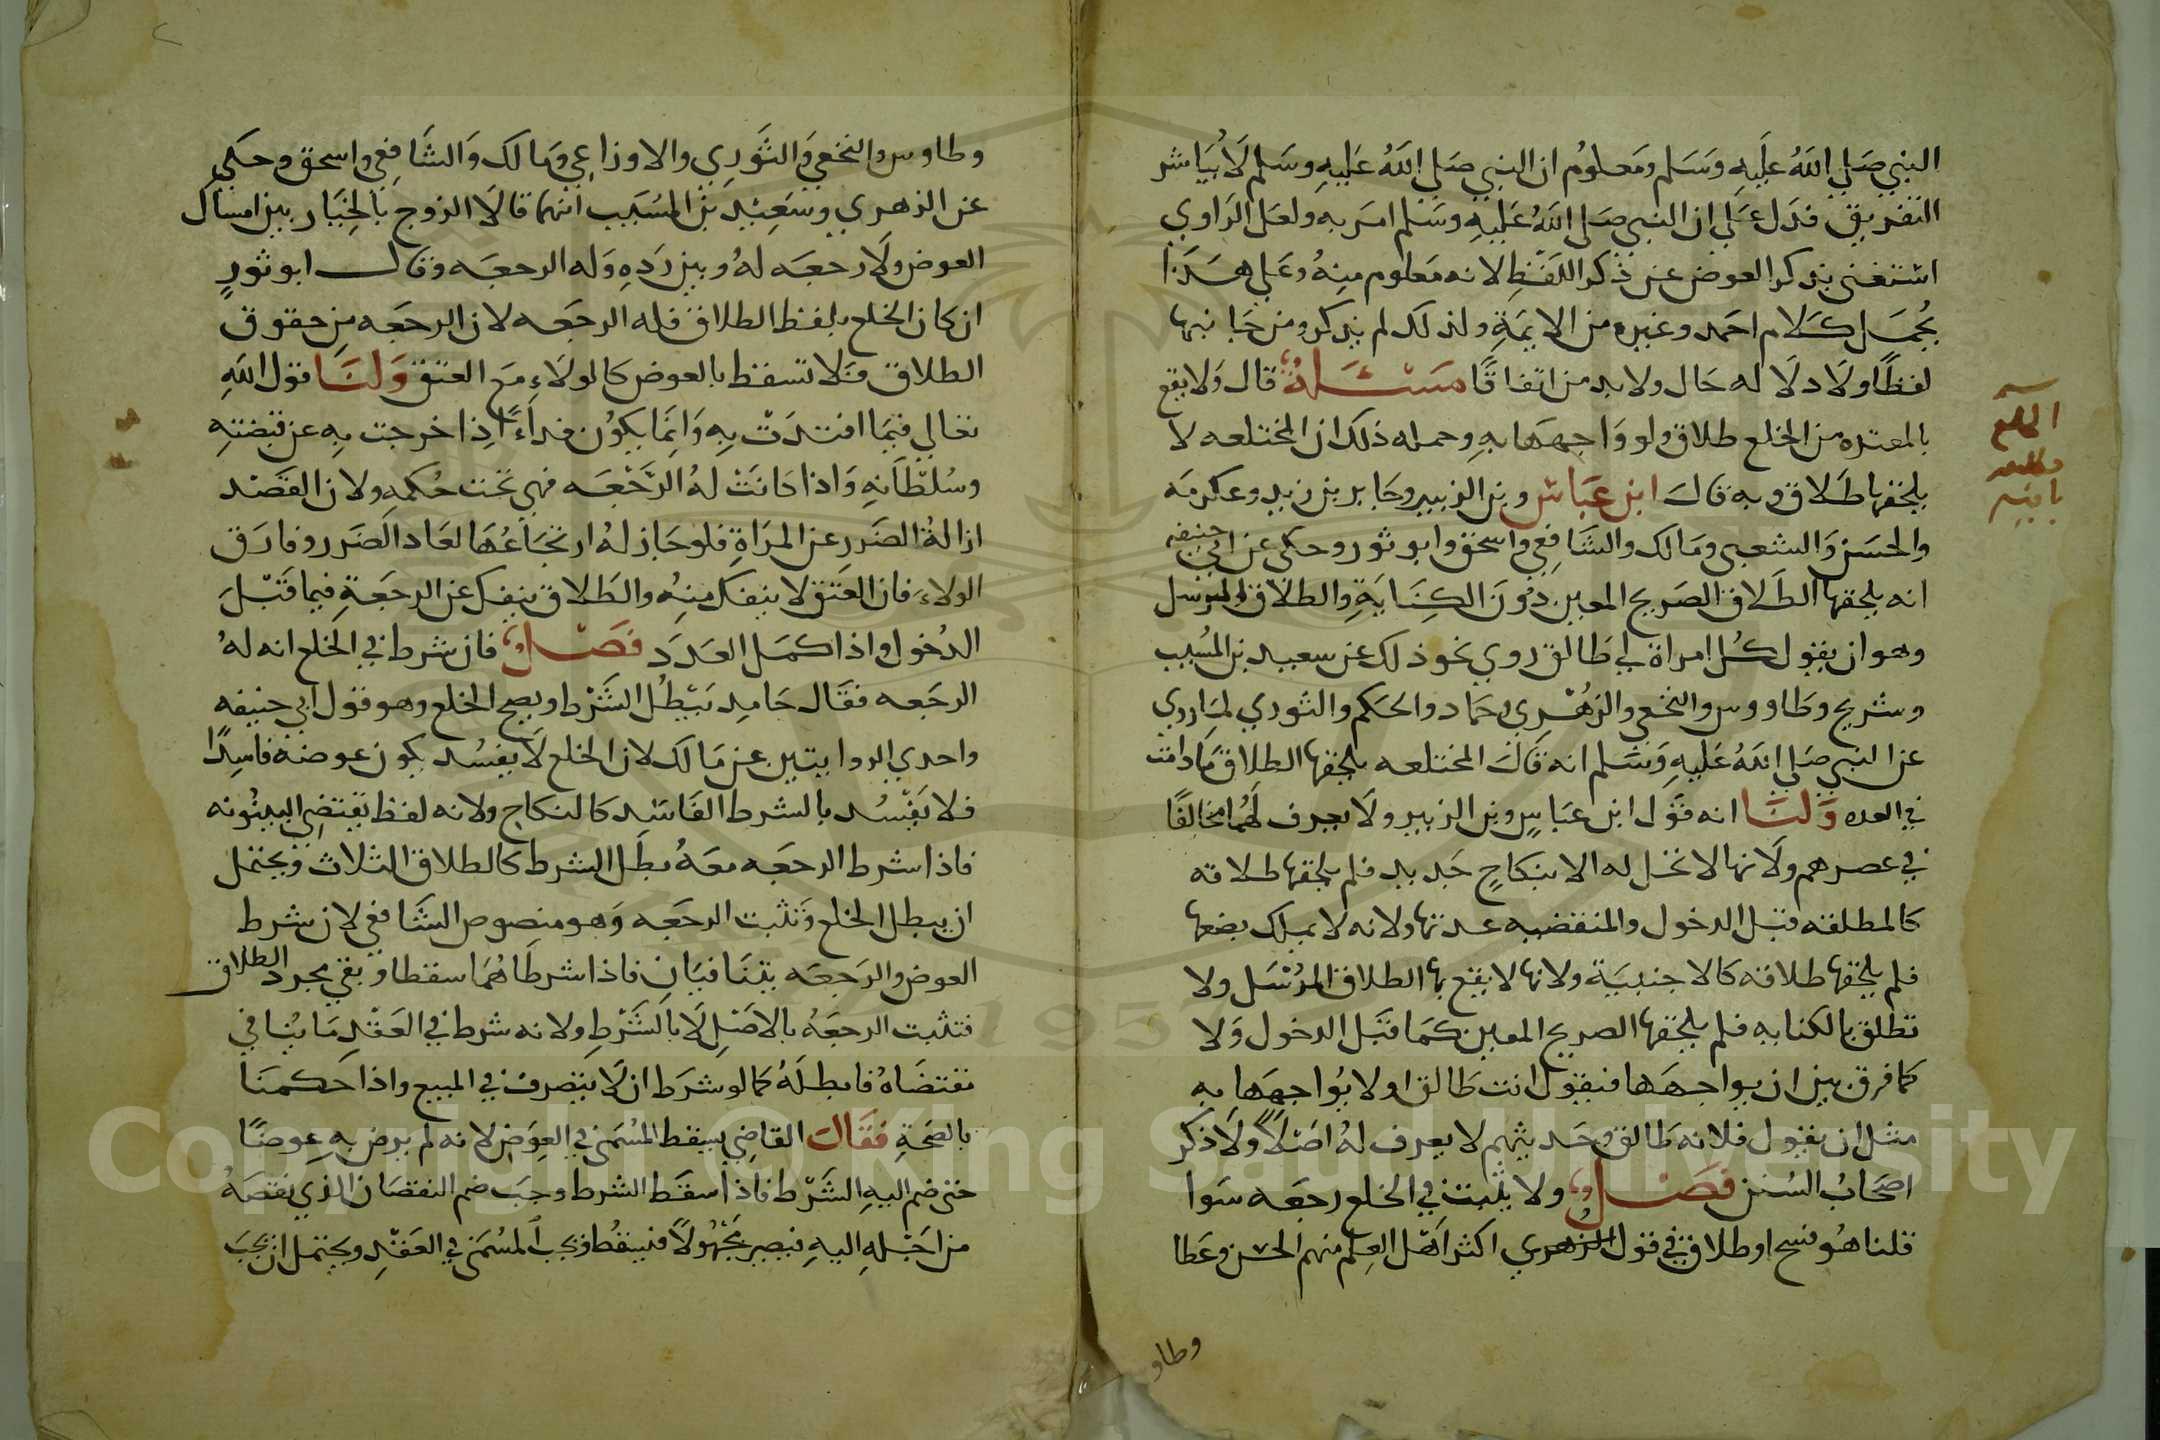 النبي صَلى اللهُ عَليهِ وَسَلم ومَعلومُ ان النبي صَلى اللهُ عَليهِ وسَلم لَا يُبَاشر
التفريق فدَل عَلى ان النبي صَلى اللهُ عَليهِ وسَلم امَر به ولعَل الرَاوي
استغنى بذكر العوض عن ذكر اللفظِ لانه مَعلوم مِنهُ وعَلى هَذَا
يُحمَل كَلام احمد وغيره من الايمَةِ ولذلك لم يذكرو من جَانبها
لفظًا ولَا دلَالة حَال ولابد من اتفاقًا مسْئَلة قال وَلا يقع
بالمعتده من الخلع طلاق ولو وَاجهَهَا بهِ وحمله ذلك ان المختلعه لا
يلحقها طَلاق وبه قالَ ابن عَباس وبن الزبير وجَابر بن زيد وعكرمَه
والحسَن وَالشعبي ومَالك والشَافِعي واسحق وابو ثور وحكى عن ابي حنيفه
انه يلحقها الطَلاق الصَريح المعين دُونَ الكِنَايَةِ والطلَاق المرسل
وهو ان يقول كُل امراة لي طَالق روي نحو ذلك عن سعيد بن المُسَيب
وشريح وطَاووس والنخعي والزهْري وحَماد والحكم والثوري لمَا روي
عن النبي صَلى اللهُ عَليهِ وَسَلم انه قَالَ المختلعه يلحقها الطلاق مَادَامَت
في العده وَلنَا انه قَول ابن عَباسٍ وبن الزبير ولَا يعرف لَهُما مخَالفًا
في عصرهم ولَانها لا تحل له الا بنكاحٍ جَديد فلم يلحقها طلاقه
كالمطلقه قبل الدخول والمنقضيه عدتها ولانه لا يملك بضعها
فلم يلحقها طلاقه كالاجنبيَة ولانها لا يقع بها الطلاق المرْسَل ولا
تطلق بالكنايه فلم يلحقها الصريح المعين كمَا قَبل الدخول وَلا
فرق بين ان يواجهَهَا فيقول انت طَالق او لا يُواجِهَهَا به
مثل ان يقول فلانه طَالق وحَديثهم لا يعرف لهُ اصْلاً ولَا ذكر
اصحَابُ السُنن فصَل ولا يثبت في الخلع رجعَه سَوا
قلنا هُو فسخ او طلاق في قول الزهري اكثر اهْل العِلم منهم الحسن وعَطا
وطاو
وطاوس والنخعي وَالثَوري والاوزاعي ومَالك وَالشَافِعي واسحق وحكى
عن الزهري وسَعيْد بن المسَيب انهما قالَا الزوج بالخِيَار بين امساك
العوض ولَا رجعَه لهُ وبين رَدهِ وَله الرجعَه وقال ابو ثورٍ
ان كان الخلع بلفظ الطلاق فله الرجعَه لان الرجعَه مِن حقوق
الطلاق فَلا تسقط بالعوض كالولَاءِ مَع العتق وَلنَا قول اللهِ
تعَالى فيمَا افتدَتْ بِهِ وَانمَا يكوُن فداءً اذا خرجت بهِ عن قبضتهِ
وسُلطَانهِ وَاذا كانَتْ لهُ الرَّجْعَه فهي تحت حُكمهِ ولان القصْد
ازالةُ الضَرر عن المرَاةِ فلو جَاز لهُ ارتجَاعُهَا لعَاد الضَرر وفارَق
الولاءَ فان العتق لا ينفك منِهُ والطَلاق ينفك عن الرجعَةِ فيما قَبْلَ
الدخُول واذا كمَل العَدَدَ فصَل فان شرط في الخلع انه لهُ
الرجَعه فقَال حَامد يَبْطُل الشَرْط ويصح الخلع وهو قول ابي حنيفه
واحدي الروايتين عن مَالك لان الخلع لَا يفسُد بكون عوضه فاسدًا
فلا يَفْسُد بالشرط الفَاسْد كالنكاح ولانه لفظ يقتضي البينوُنه
فاذا شرط الرجعَه معَهُ بطَل الشرط كالطلاق الثلاث ويحتمل
ان يبطل الخلع وَتثبت الرجعَه وَهو منصوص الشَافعي لان شرط
العوض والرَجعَه يتنَافيَان فاذا شرطَاهُمَا سقطا وبقي مجرد الطلاق
فتثبت الرجعَهُ بالاصْلِ لَا بالشَرْطِ ولانه شرط في العَقْدِ مَا يُنافي
مقتضَاهُ فابطلَهُ كما لو شرَط ان لَا يتصرف في المبيع واذا حَكمنَا
بالصَحةِ فقَالَ القاضي يسقط المُسَمى في العِوَض لانه لم يرض بهِ عِوضًا
حتى ضم اليهِ الشَرْط فاذا اسقَط الشرط وجَب ضم النقصَان الذي نقصَهُ
من اجْلهِ اليهِ فيصير مَجْهُولًا فيسقُط ويجب المُسَمى في العَقْدِ ويحتمل ان يجبَ